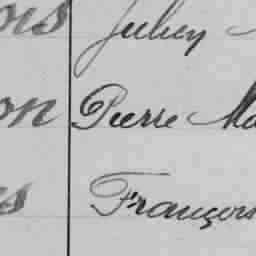 ois Julien
on Pierre Ma
es François